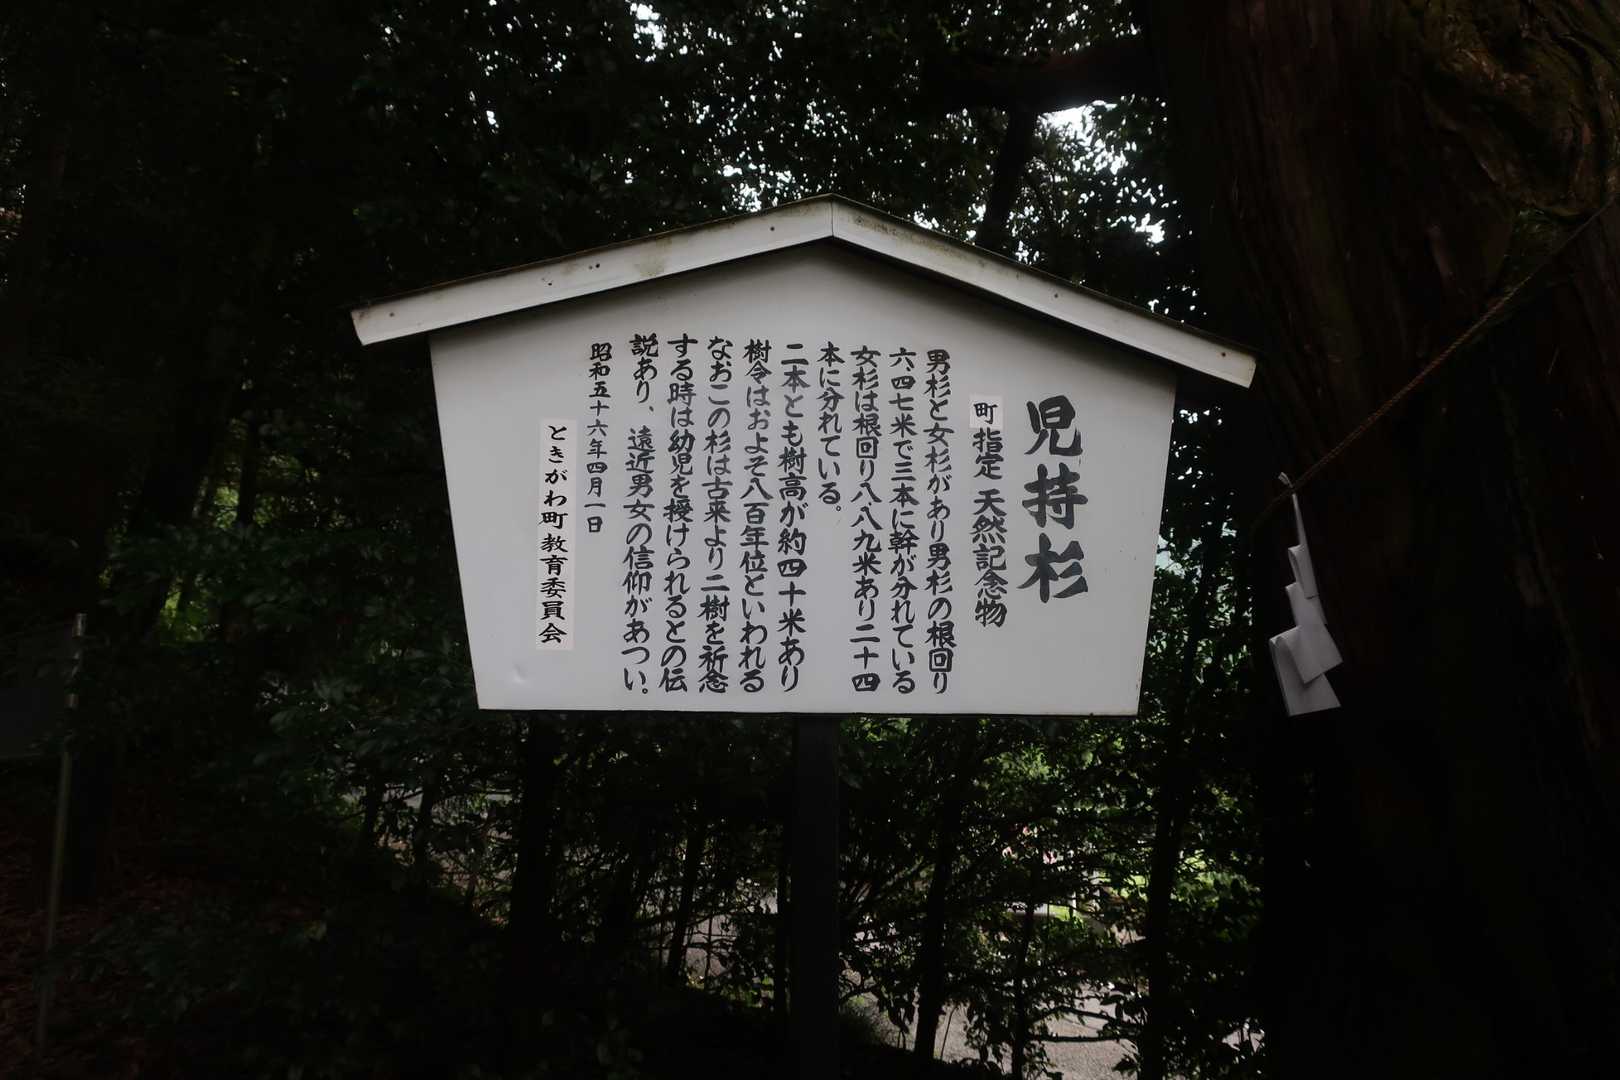 児持杉
町指定 天然記念物
男杉と女杉があり男杉の根回り
六四七米で三本に幹が分れている
女杉は根回り八八九米あり二十四
本に分れている。
二本とも樹高が約四十米あり
樹令はおよそ八百年位といわれる
なおこの杉は古来より二樹を祈念
する時は幼児を授けられるとの伝
説あり、遠近男女の信仰があつい。
昭和五十六年四月一日
ときがわ町教育委員会